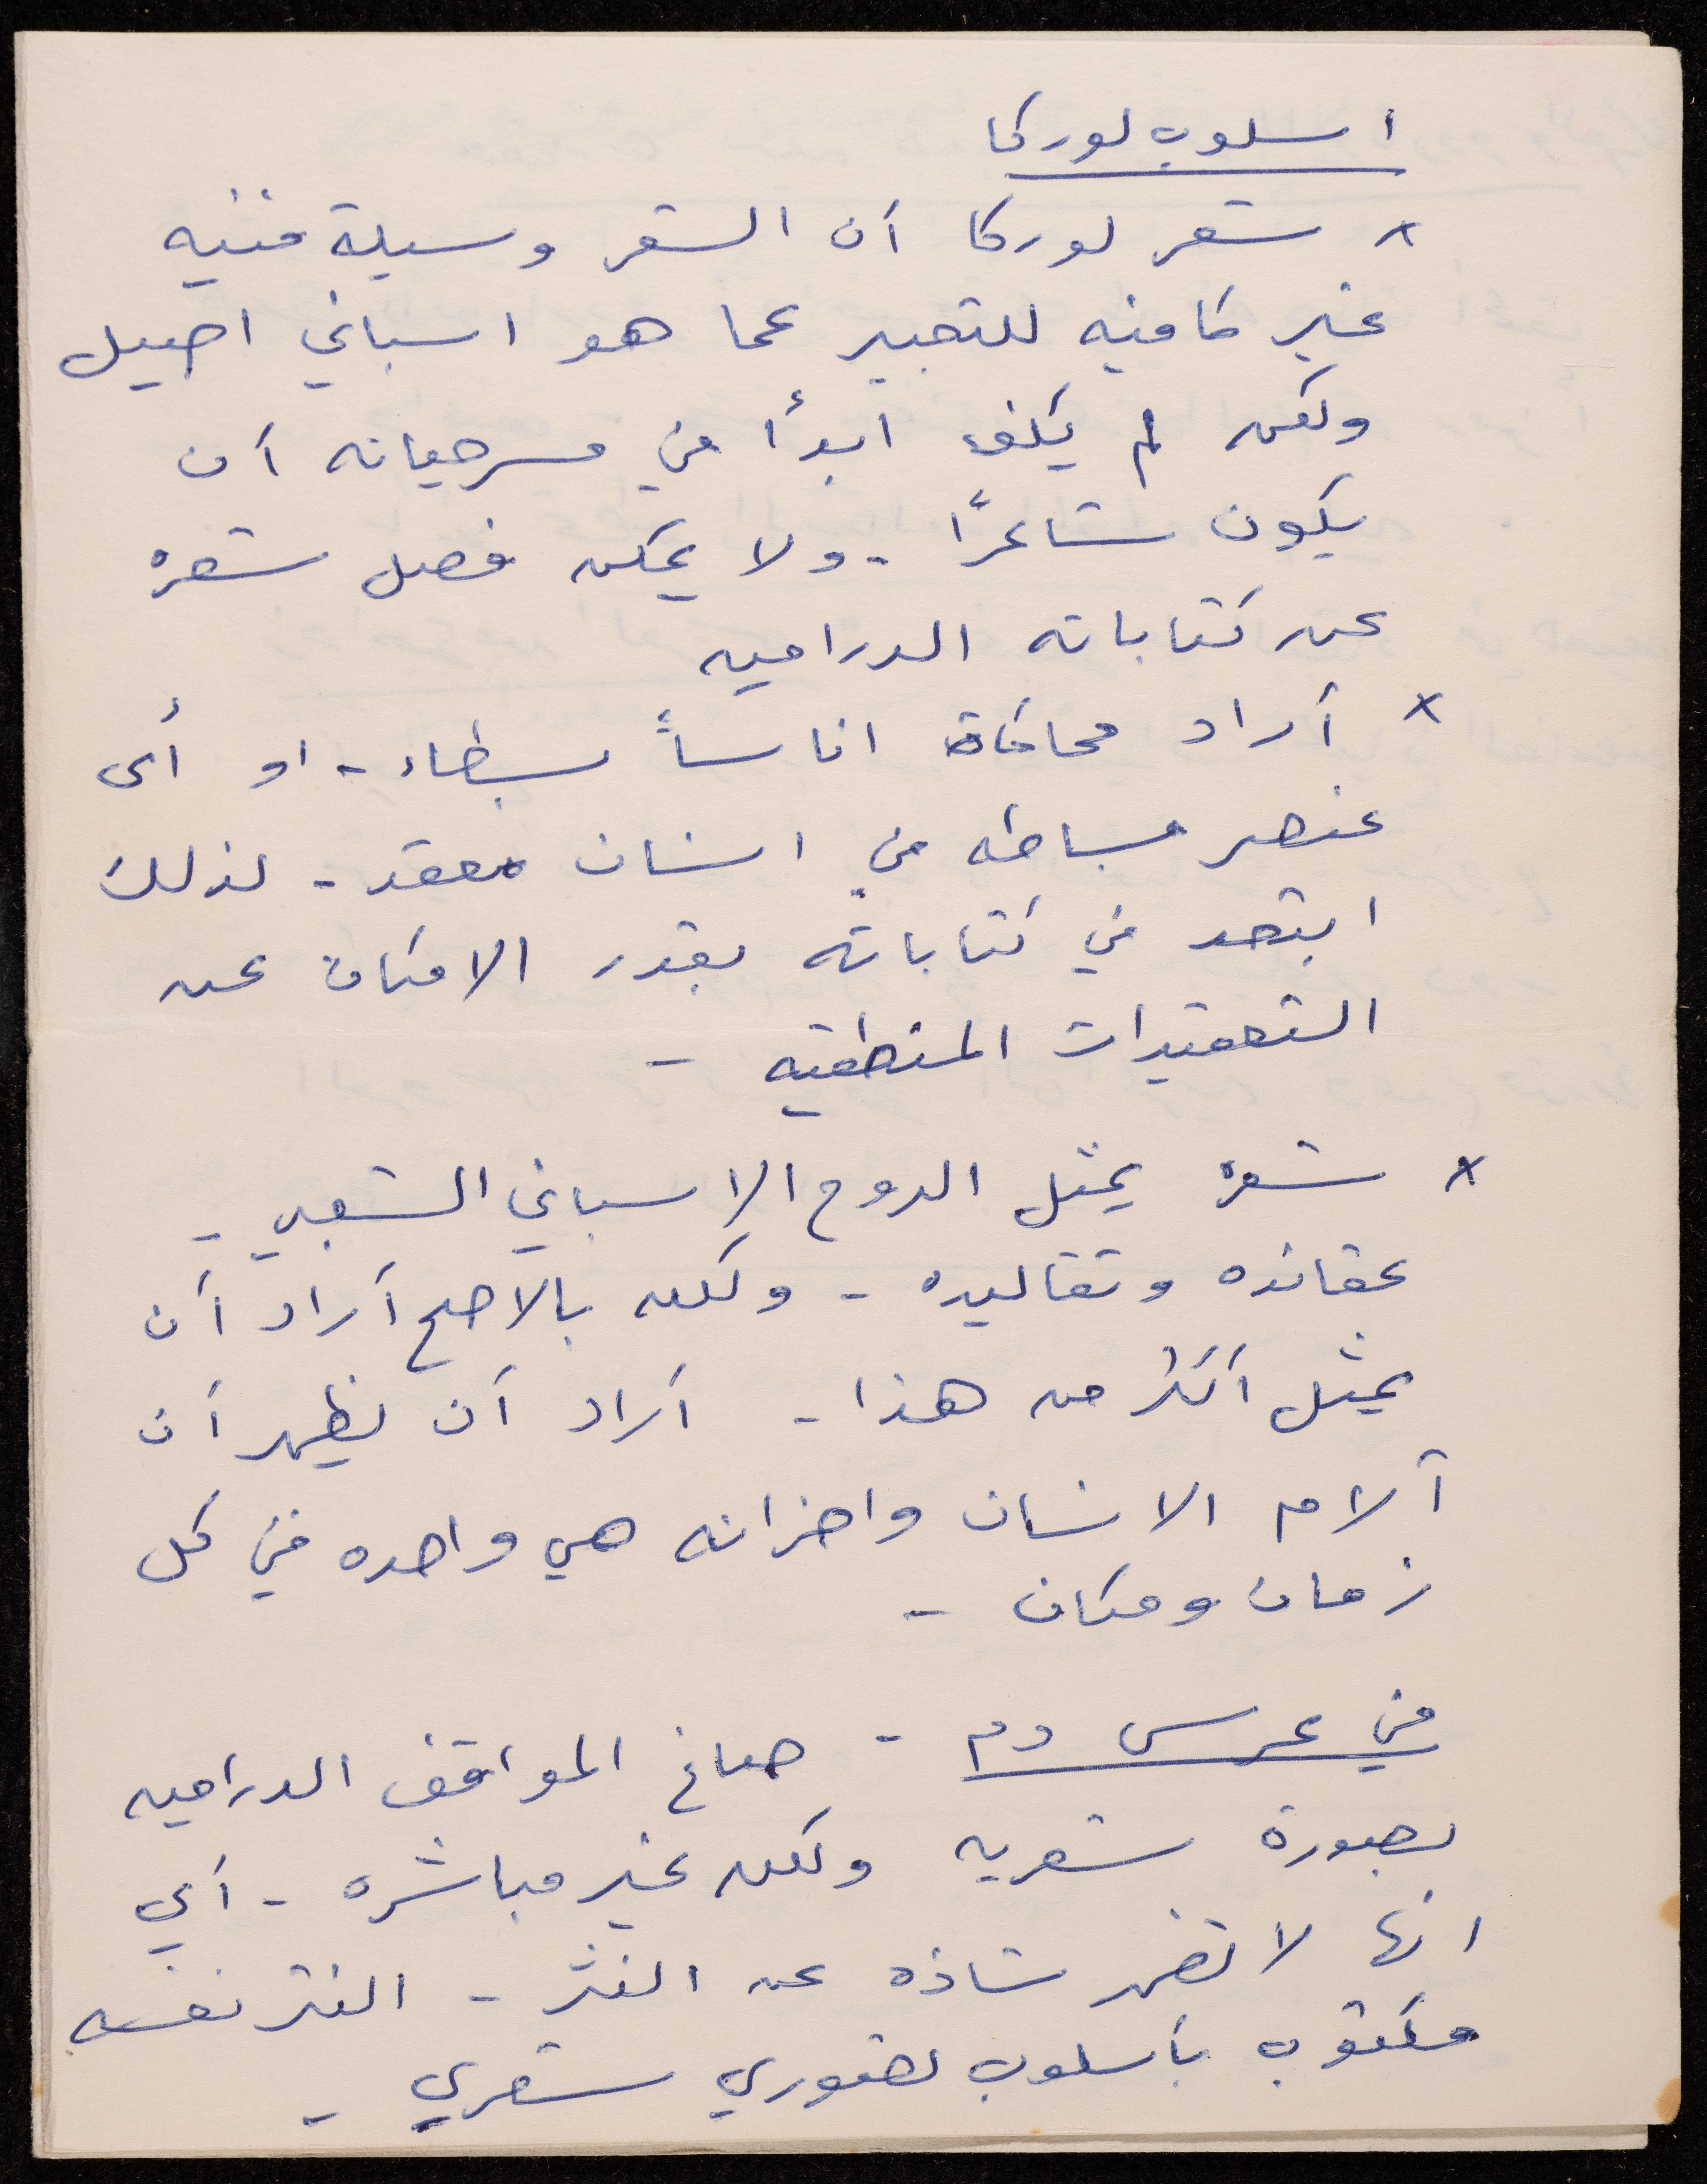 اسلوب لوركا
* شعر لوركا أن الشعر وسيلة فنيه
غير كافيه للتعبير عما هو اسباني اصيل
ولكن لم يكف ابدأً في مسرحياته أن
يكون شاعرًا - ولا يمكن فصل شعره
عن كتاباته الدراميه
* أراد محاكاة اناساً بسطاء - او أى
عنصر بساطه في انسان معقد - لذلك
ابتعد في كتاباته بقدر الامكان عن
التعقيدات المنطقيه -
* شعره يمثل الروح الإسباني الشعبي -
عقائده وتقاليده - ولكنه بالاصح أراد أن
يمثل أكثر من هذا - أراد أن يظهر أن
آلام الانسان واحزانه هي واحده في كل
زمان ومكان -
في عرس دم - صاغ المواقف الدراميه
بصورة شعريه ولكن غير مباشره - أي
انها لا تظهر شاذه عن النثر - النثر نفسه
مكتوب بأسلوب تصويري شعري -